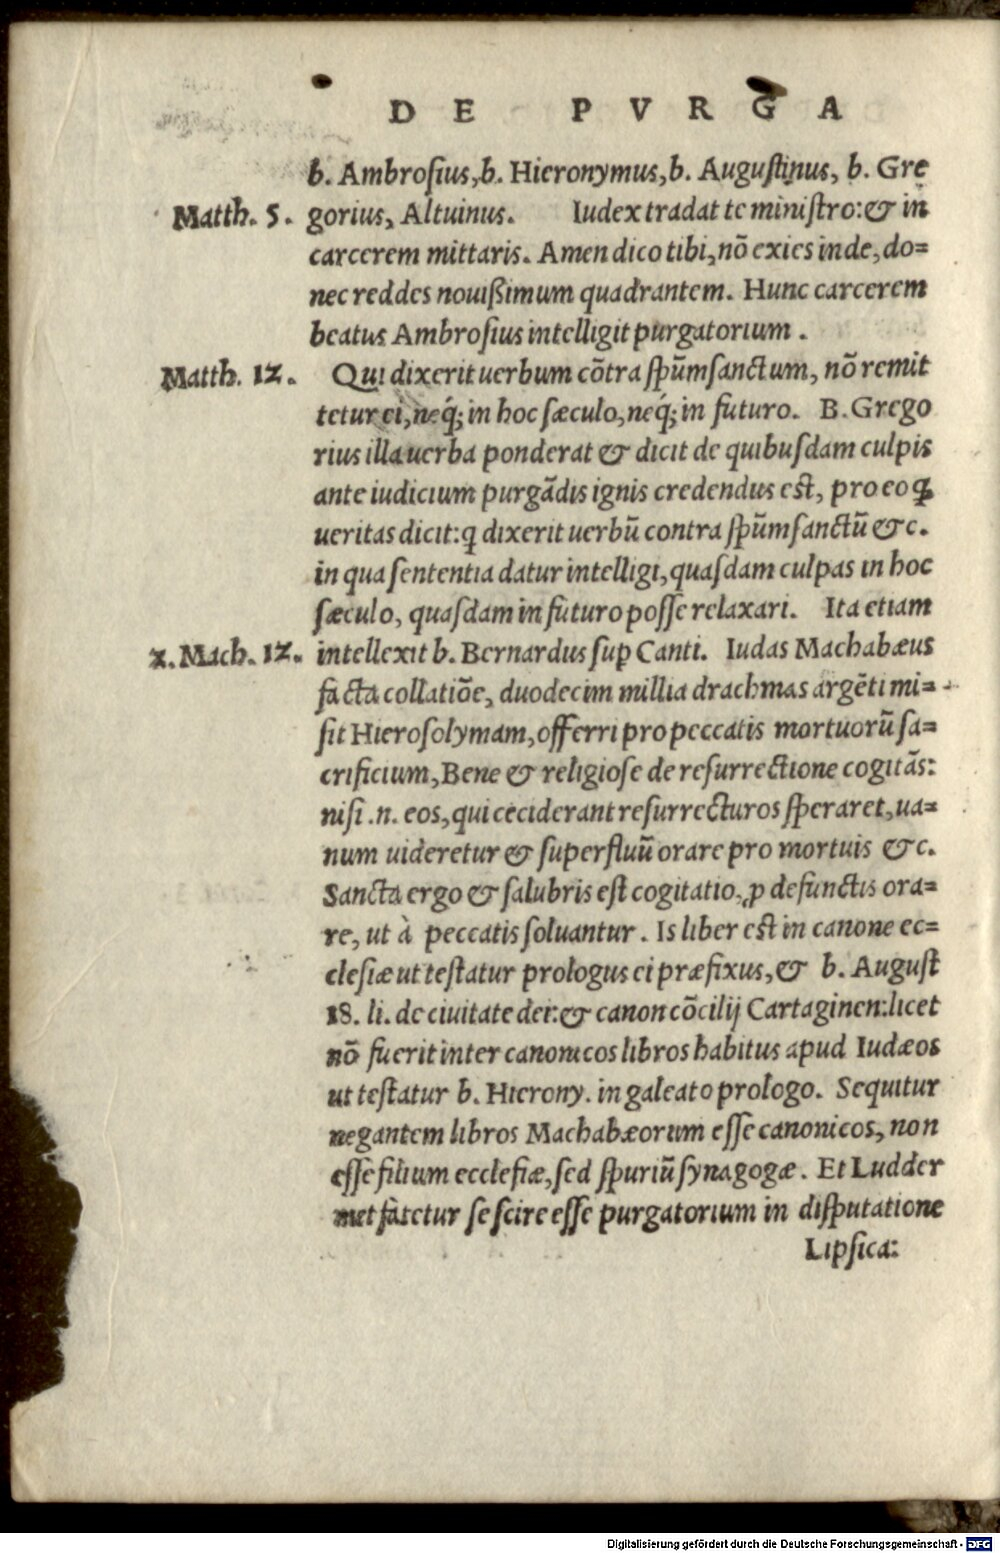 DE PVRGA
b. Ambroſius, b. Hieronymus, b. Auguſtinus, b. Gre
Matth. 5. gorius, Altuinus. Iudex tradat te miniſtro: & in
carcerem mittaris. Amen dico tibi, nō exies inde, do=
nec reddes nouißimum quadrantem. Hunc carcerem
beatus Ambroſius intelligit purgatorium.
Matth. 12. Qui dixerit uerbum cōtra ſpūmſanctum, nō remit
tetur ei, neq́; in hoc ſæculo, neq́; in futuro. B. Grego
rius illa uerba ponderat & dicit de quibuſdam culpis
ante iudicium purgādis ignis credendus eſt, pro eo ꝙ
ueritas dicit: q dixerit uerbū contra ſpūmſanctū &c.
in qua ſententia datur intelligi, quaſdam culpas in hoc
ſæculo, quaſdam in futuro poſſe relaxari. Ita etiam
2. Mach. 12. intellexit b. Bernardus ſuꝑ Canti. Iudas Machabæus
facta collatiōe, duodecim millia drachmas argēti mi=
ſit Hieroſolymam, offerri pro peccatis mortuorū ſa=
crificium, Bene & religioſe de reſurrectione cogitās:
niſi .n. eos, qui ceciderant reſurrecturos ſperaret, ua=
num uideretur & ſuperfluū orare pro mortuis &c.
Sancta ergo & ſalubris eſt cogitatio, ꝓ defunctis ora=
re, ut à peccatis ſoluantur. Is liber eſt in canone ec=
cleſiæ ut teſtatur prologus ei præfixus, & b. Auguſt
18. li. de ciuitate dei: & canon cōcilij Cartaginen: licet
nō fuerit inter canonicos libros habitus apud Iudæos
ut teſtatur b. Hierony. in galeato prologo. Sequitur
negantem libros Machabæorum eſſe canonicos, non
eſſe filium eccleſiæ, ſed ſpuriū ſynagogæ. Et Ludder
met fatetur ſe ſcire eſſe purgatorium in diſputatione
Lipſica:
Digitalisierung gefördert durch die Deutsche Forschungsgemeinschaft - DFG